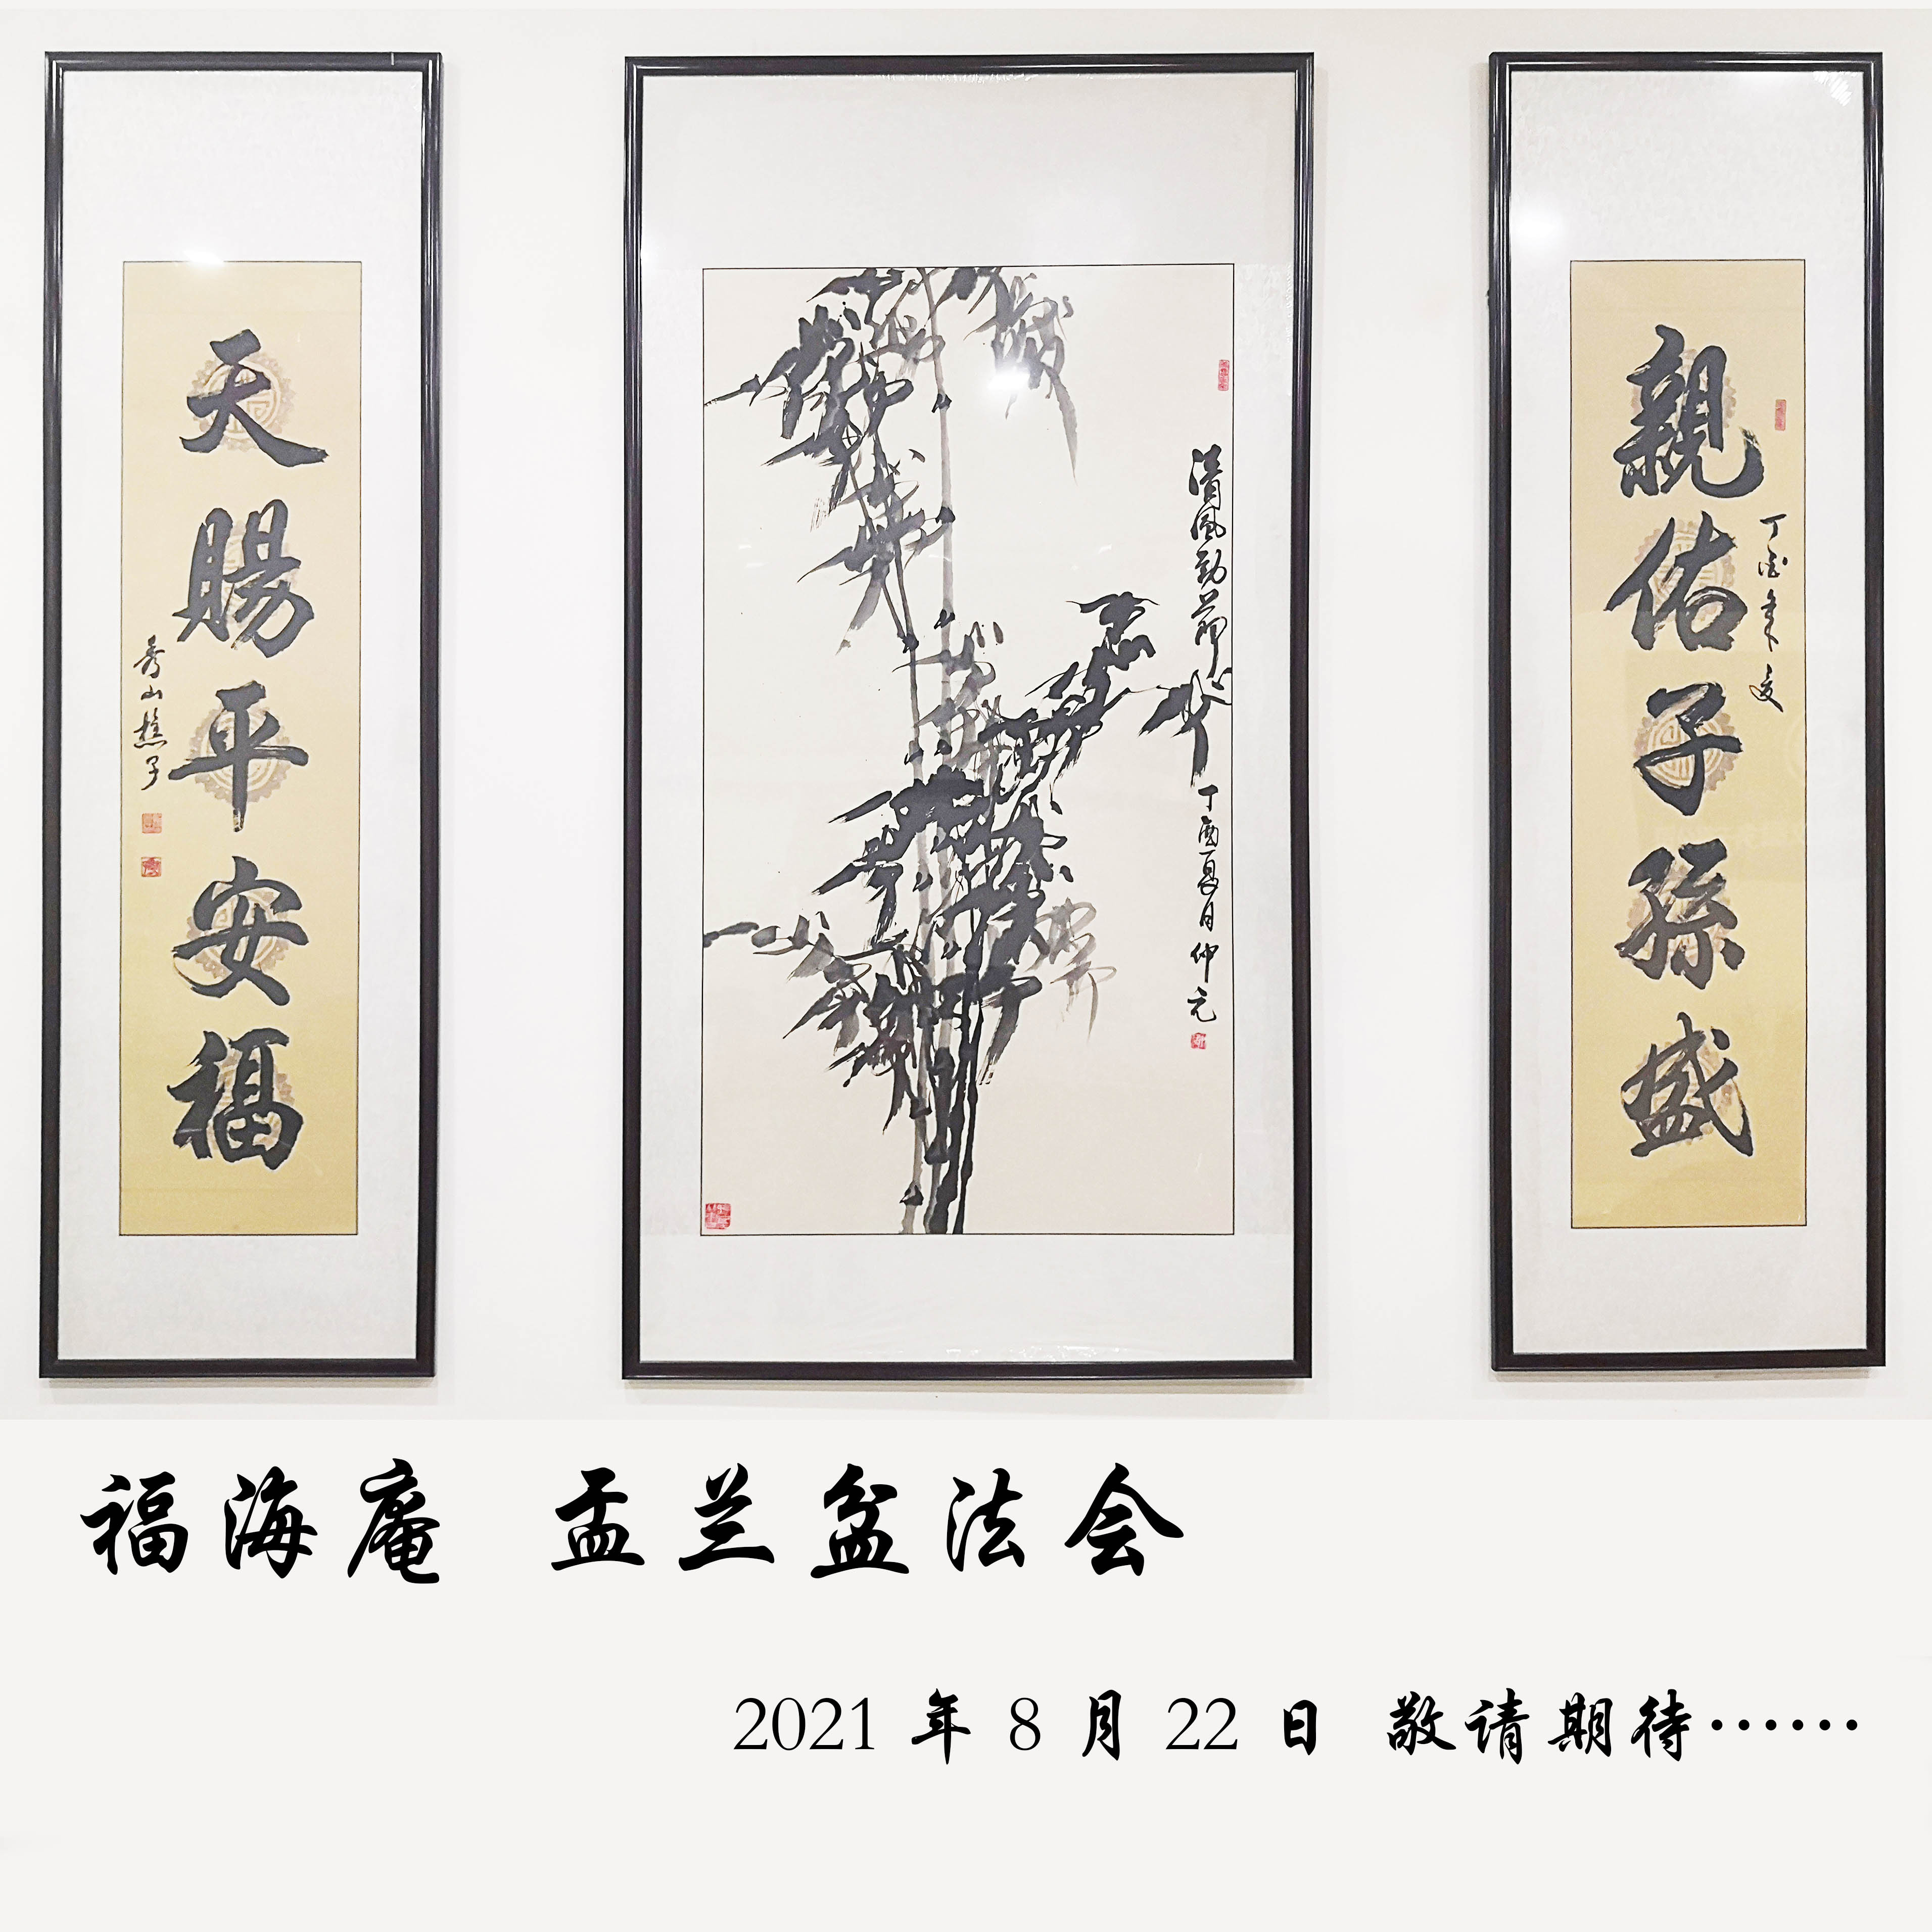 親佑子孫盛
丁酉年夏
清風勁節
丁酉夏月仲元
天賜平安福
秀山樵子
福海庵 盂兰盆法会
2021年8月22日 敬请期待……